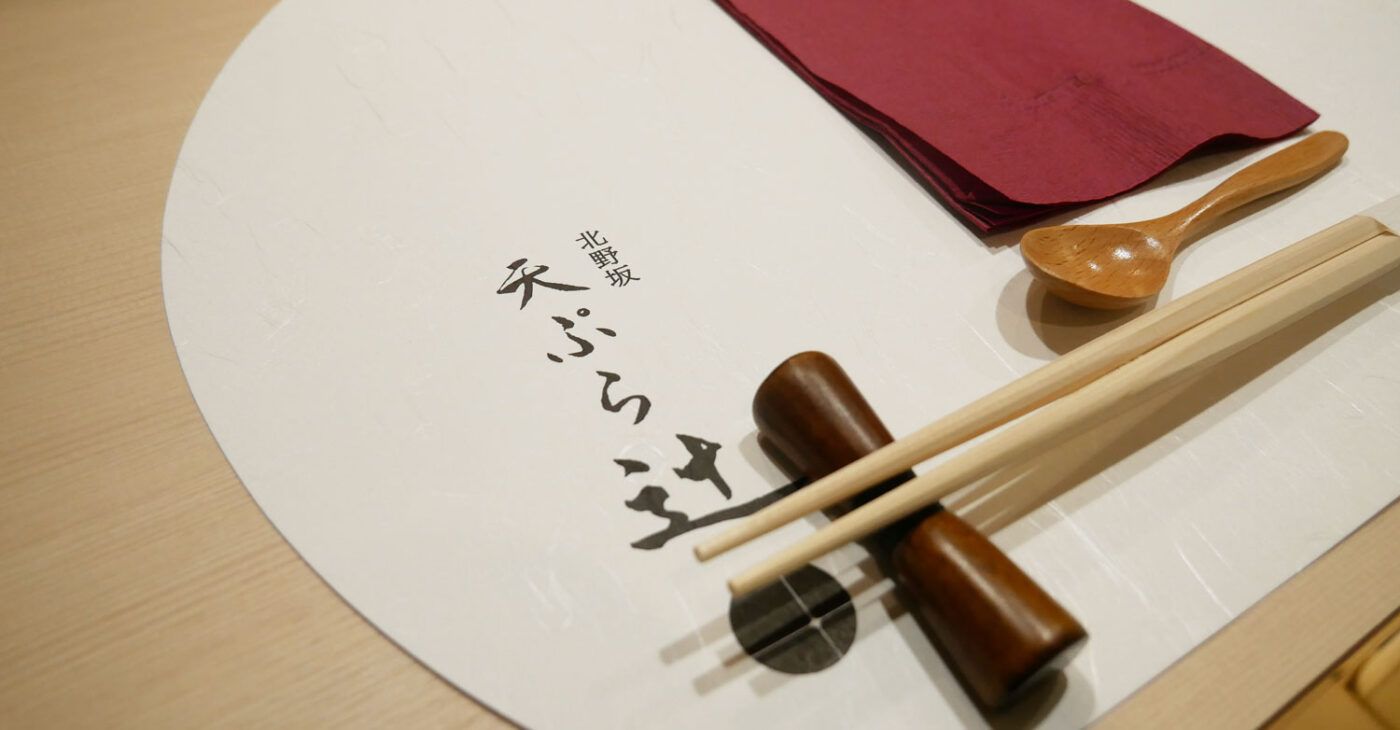 北野坂
天ぷら辻